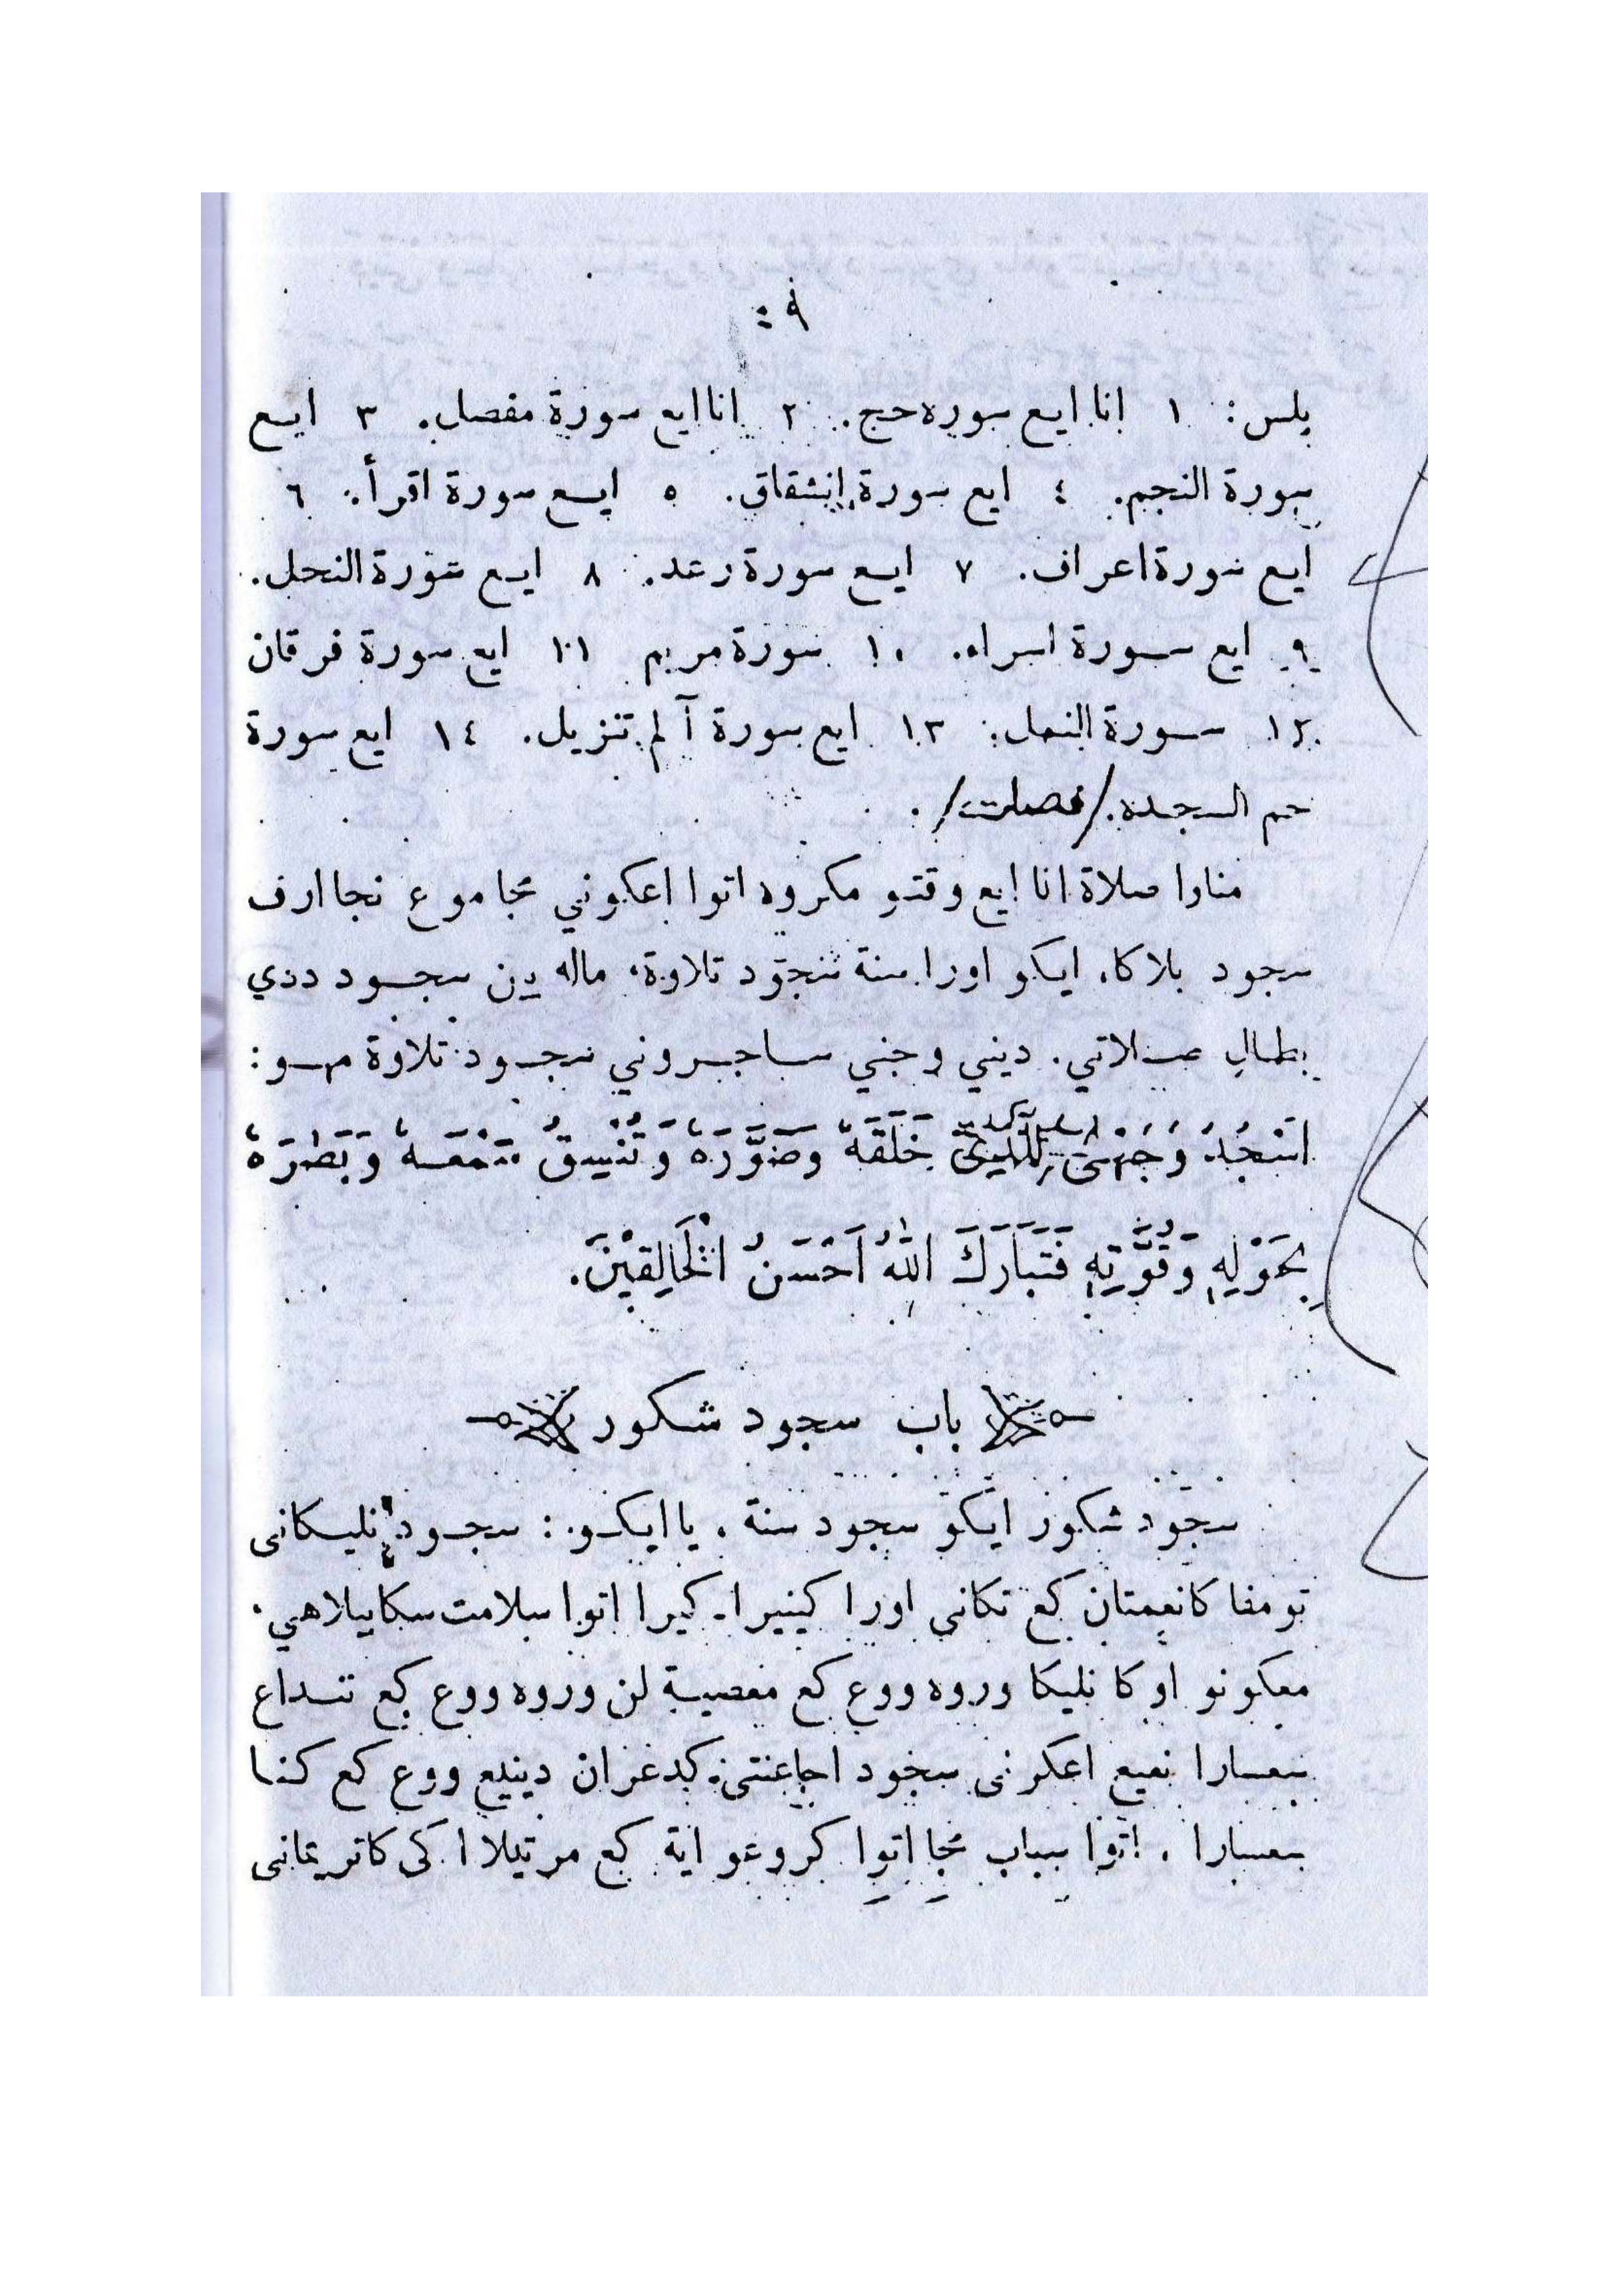 ٩ :
بلس: ١ انا ايع سوره حج. ٢ انا ايع سورة مفصل. ٣ ايع
سورة النجم. ٤ ايع سورة انشقاق. ٥ ايع سورة اقرأ. ٦
ايع سورة اعراف. ٧ ايع سورة رعد. ٨ ايع سورة النحل.
٩ ايع سورة اسراء. ١٠ سورة مريم ١١ ايع سورة فرقان
١٢ سورة النمل: ١٣ ايع سورة آلم تنزيل. ١٤ ايع سورة
حم السجده. /فصلت/ .
مناوا صلاة انا ايع وقتو مكروه اتوا اعكوني مجا موع نجا ارف
سجود بلاكا، ايكو اورا سنة سجود تلاوة، ماله ين سجود ددي
بطال صلاتي. ديني وجني ساجروني سجود تلاوة مو:
اَسْجُدُ وَجْهِىَ لِلَّذِىْ خَلَقَهُ وَصَوَّرَهُ وَ سَمْعَهُ وَبَصَرَهُ
بِحَوْلِهِ وَقُوَّتِهِ فَتَبَارَكَ اللّٰهُ اَحْسَنُ الْخَالِقِيْنَ.
باب سجود شكور
سجود شكور ايكو سجود سنة . يا ايكو : سجود نليكانى
تومفا كانعمتان كع تكانى اورا كينيرا-كيرا اتوا سلامت سكا بيلاهي.
معكونو اوكا نليكا وروه ووع كع معصية لن وروه ووع كع تنداع
سعسارا نعيع اعكرنى سجود اجا كدغران دينيع ووع كع كنا
سعسارا . اتوا سباب مجا اتوا كروعو اية كع مرتيلا اكى كاتريمانى